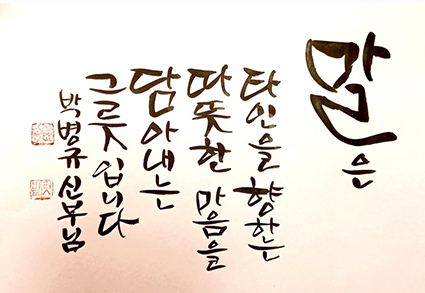 말은
타인을 향하는
따뜻한 마음을
담아내는
그릇입니다
박병규 신부님